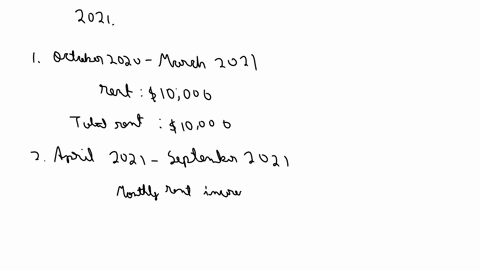 2021.
1. October 2020 - March 2021
rent : $10,000
Total rent : $10,000
2. April 2021 - September 2021
Monthly rent increa